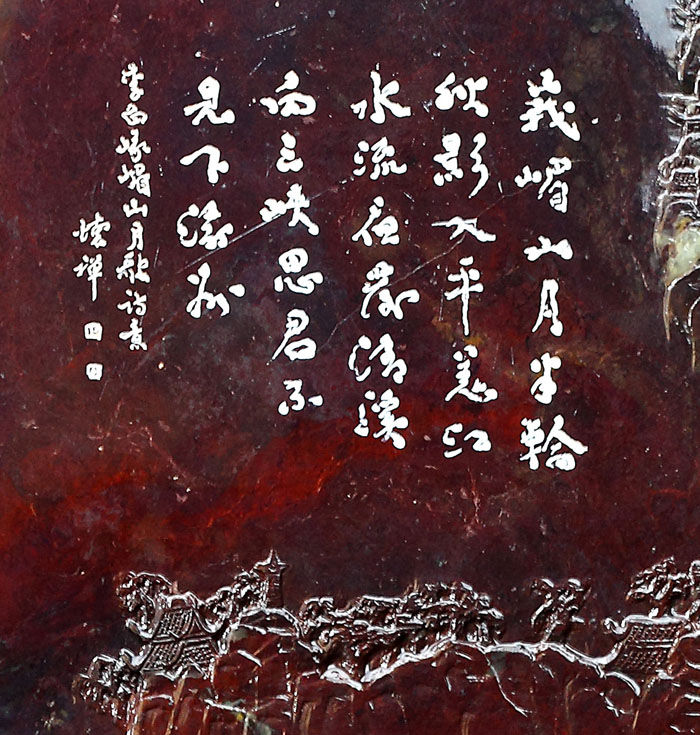 峩嵋山月半輪
秋影入平羌江
水流夜發清溪
向三峡思君不
见下渝州
李白峨嵋山月歌诗意
禅